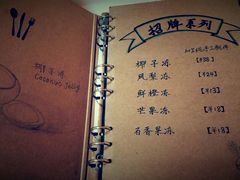 椰子冻
Coconut Jelly
招牌系列
椰子冻 [¥38]
凤梨冻 [¥29]
鲜橙冻 [¥13]
芒果冻 [¥18]
百香果冻 [¥18]